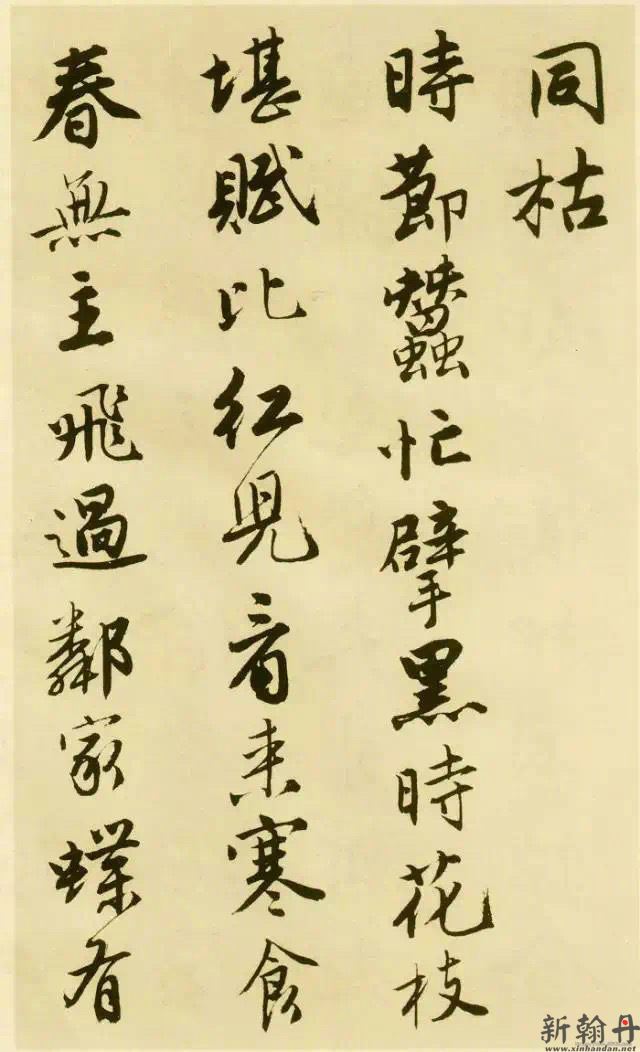 同枯
時節蠶忙擘黑時花枝
堪賦比紅兒看来寒食
春無主飛過鄰家蝶有
新翰丹
www.xinhandan.net